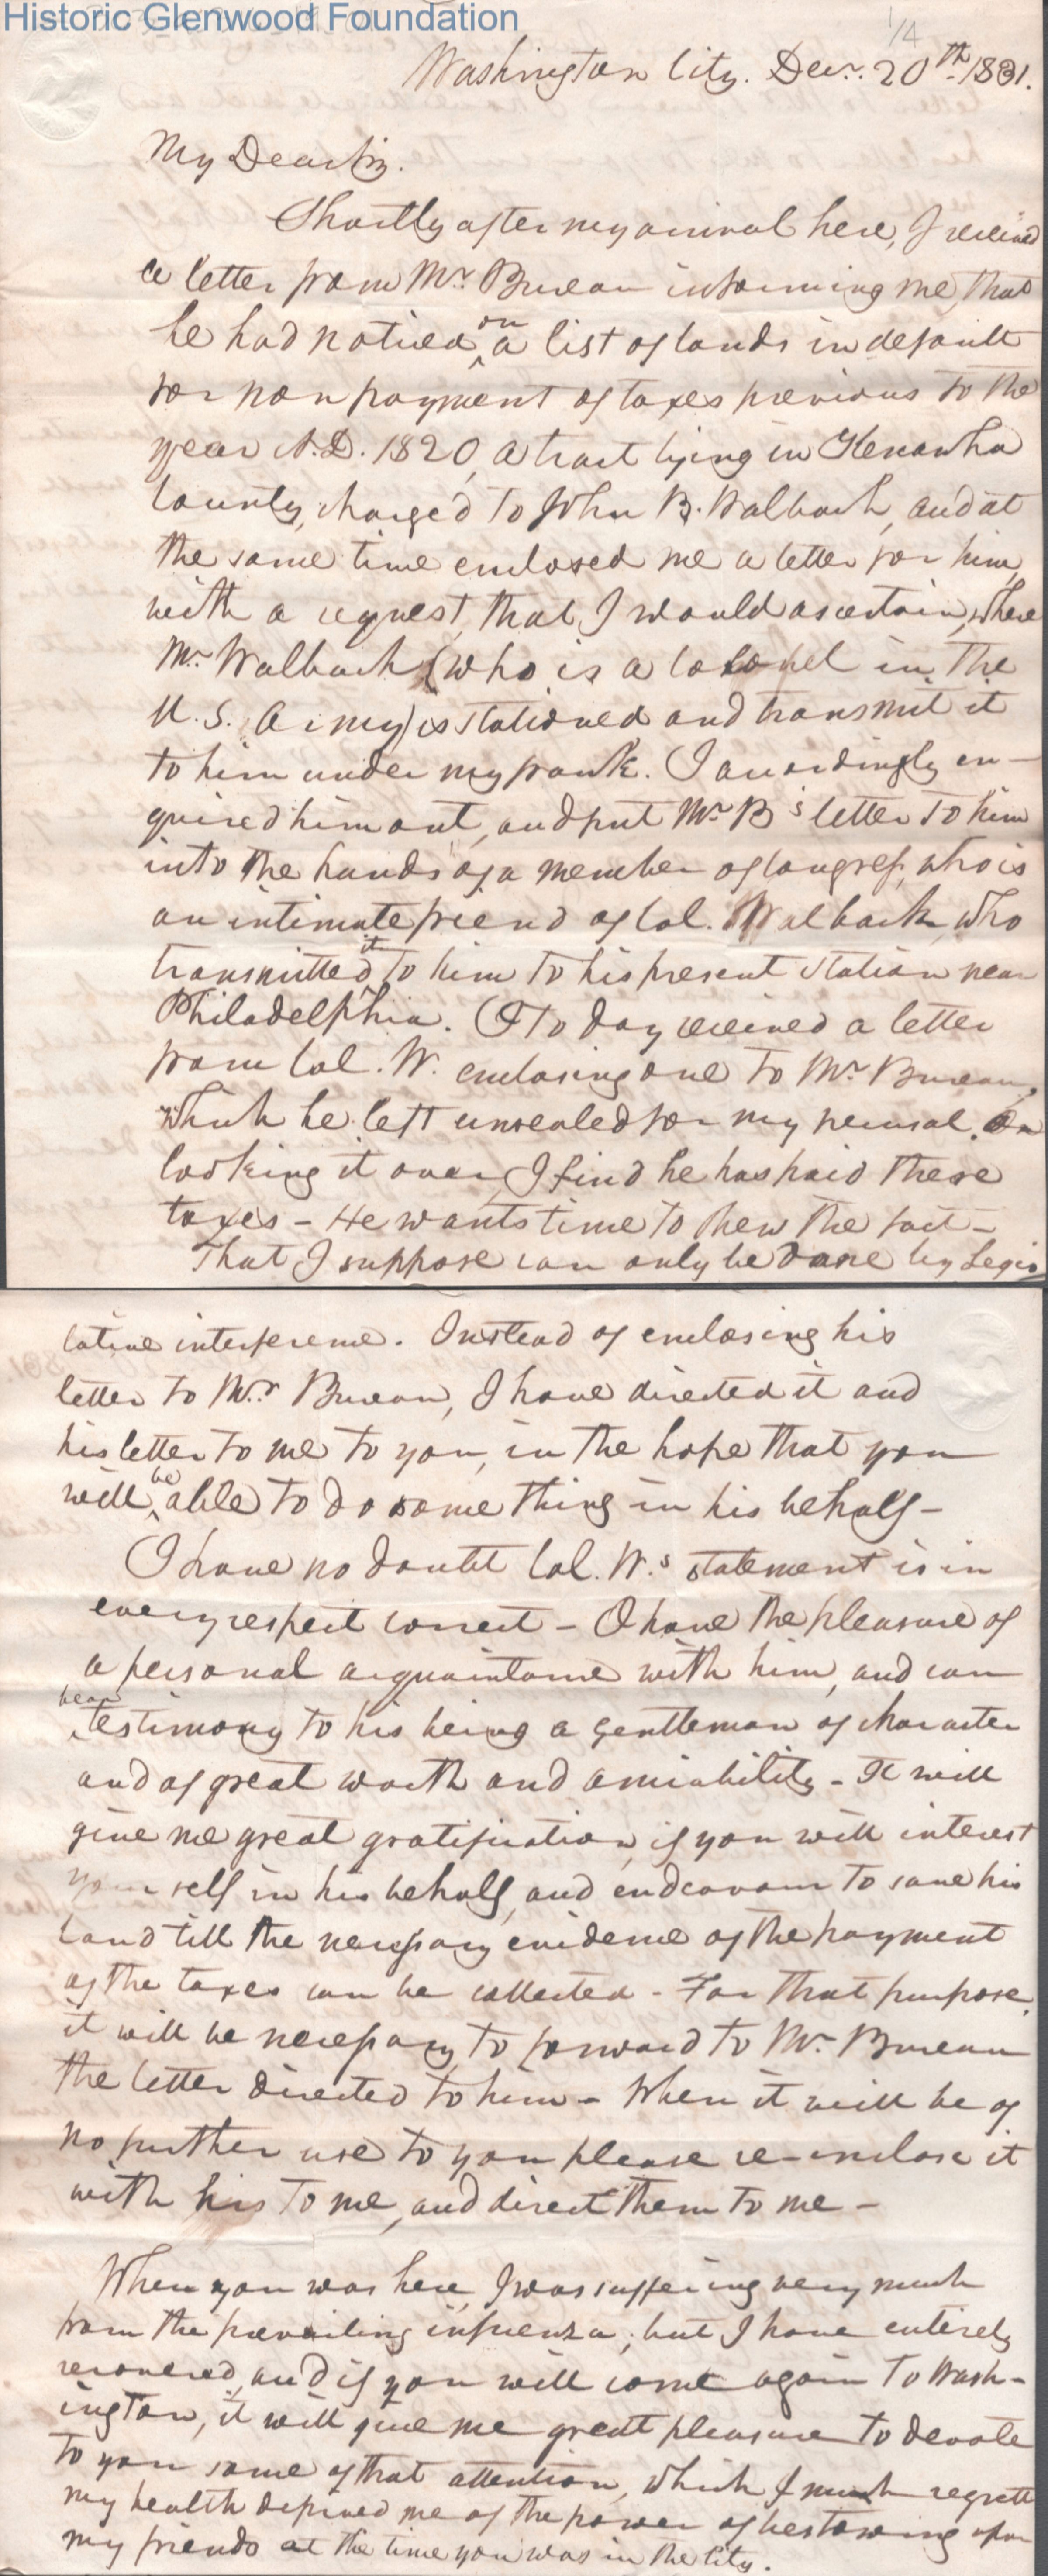 Historic Glenwood Foundation
1/4
Washington City. Decr. 20th 1831.
My Dear Sir.
Shortly after my arrival here, I received
a letter from Mr. Bureau informing me, that
he had noticed on a list of lands in default
for non payment of taxes previous to the
year A.D. 1820, a tract lying in Kenawha
County, charged to John B. Walbach, and at
the same time enclosed me a letter for him,
with a request, that I would ascertain, where
Mr. Walbach (who is a Colonel in the
U.S. Army) is stationed and transmit it
to him under my frank. I accordingly en-
quired him out, and put Mr. B's letter to him
into the hands of a member of Congress, who is
an intimate friend of Col. Walbach, who
transmitted it to him to his present station near
Philadelphia. I to day received a letter
from Col. W. enclosing one to Mr. Bureau,
which he left unsealed for my perusal. On
looking it over, I find he has paid these
taxes - He wants time to shew the fact -
That I suppose can only be done by Legis
lative interference. Instead of enclosing his
letter to Mr. Bureau, I have directed it and
his letter to me to you, in the hope that you
will be able to do some thing in his behalf -
I have no doubt Col. W.s statement is in
every respect correct - I have the pleasure of
a personal acquaintance with him, and can
bear testimony to his being a gentleman of character
and of great worth and amiability - It will
give me great gratification, if you will interest
your self in his behalf, and endeavour to save his
land till the necessary evidence of the payment
of the taxes can be collected - For that purpose,
it will be necessary to forward to Mr. Bureau
the letter directed to him - When it will be of
no further use to you please re-enclose it
with his to me, and direct them to me -
When you was here, I was suffering very much
from the prevailing influenza; but I have entirely
recovered, and if you will come again to Wash-
ington, it will give me great pleasure to devote
to you some of that attention, which I much regrett
my health deprived me of the power of bestowing upon
my friends at the time you was in the City.